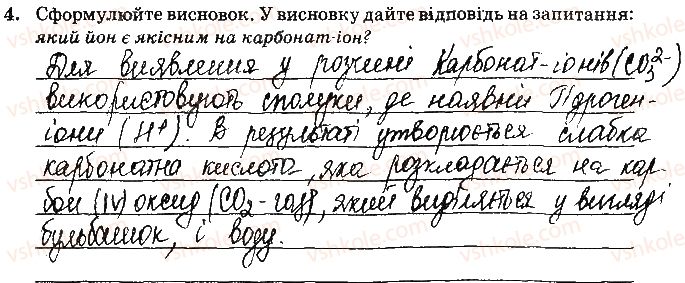 4. Сформулюйте висновок. У висновку дайте відповідь на запитання:
який йон є якісним на карбонат-іон?
Для виявлення у розчині карбонат-іонів (CO₃²⁻)
використовують сполуки, де наявні Гідроген-
іони (H⁺). В результаті утворюється слабка
карбонатна кислота, яка розкладається на кар-
бон (IV) оксид (CO₂-газ), який виділяється у вигляді
бульбашок, і воду.